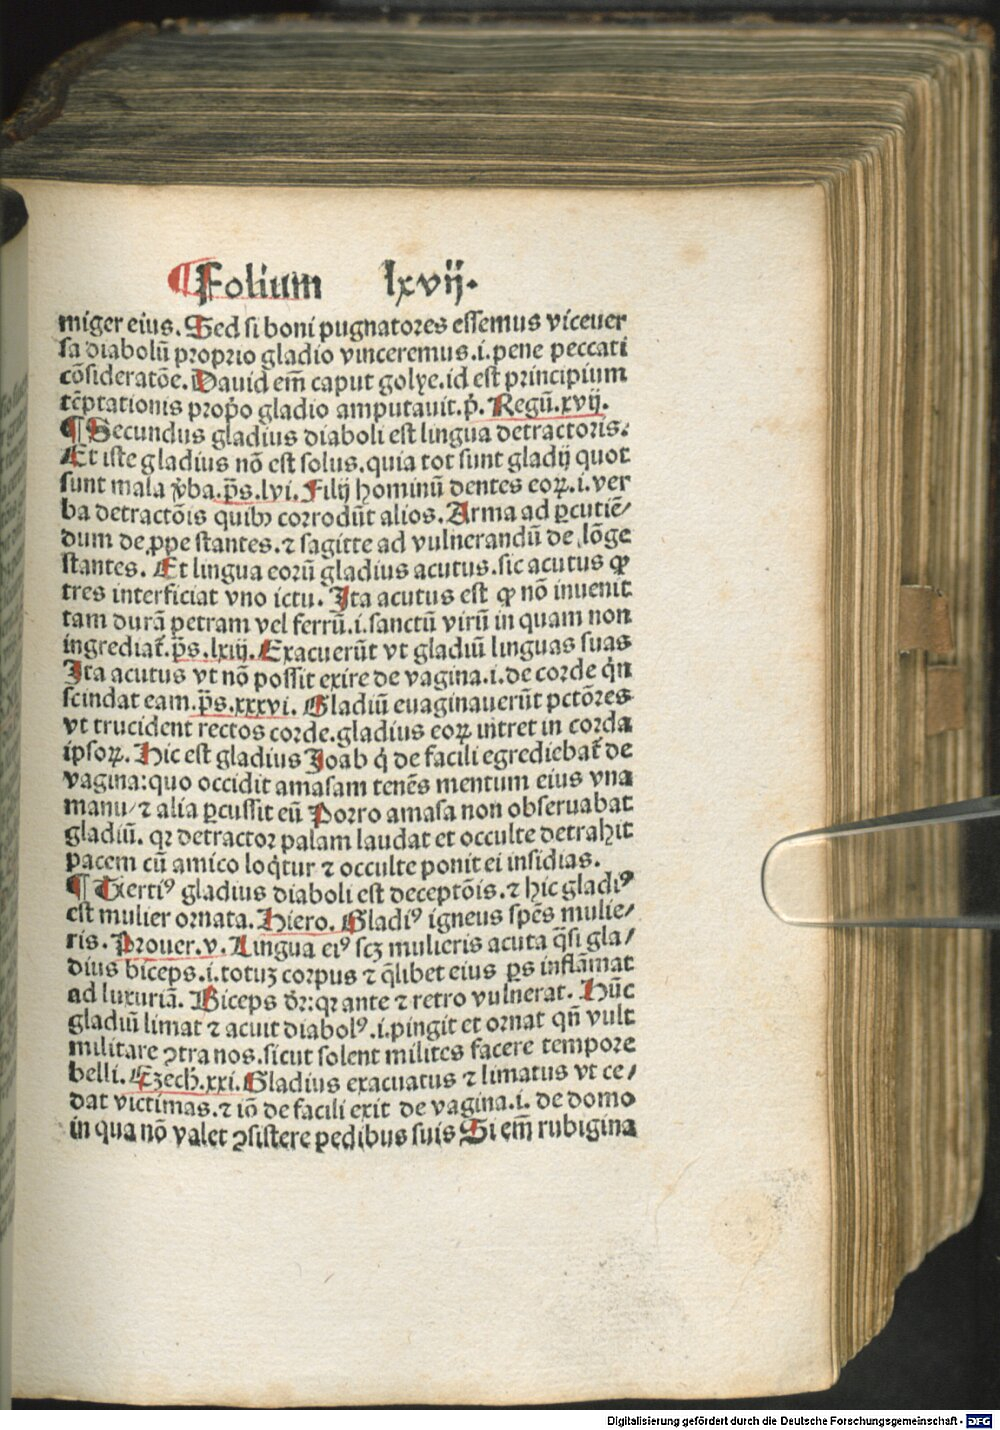 ¶Folium lxvij.
miger eius. Sed si boni pugnatores essemus viceuer
sa diabolū proprio gladio vinceremus.i.pene peccati
cōsideratōe. Dauid em̄ caput golye.id est principium
tēptationis prop̄o gladio amputauit.p̄. Regū.xvij.
¶ Secundus gladius diaboli est lingua detractoris.
Et iste gladius nō est solus.quia tot sunt gladij quot
sunt mala v̄ba.p̄s.lvi. Filij hominū dentes eoꝝ.i.ver
ba detractōis quibꝫ corrodūt alios. Arma ad ꝑcutiē/
dum de ꝓpe stantes.⁊ sagitte ad vulnerandū de lōge
stantes. Et lingua eorū gladius acutus.sic acutus ꝙ
tres interficiat vno ictu. Ita acutus est ꝙ nō inuenit
tam durā petram vel ferrū.i.sanctū virū in quam non
ingrediat̄.p̄s.lxiij. Exacuerūt vt gladiū linguas suas
Ita acutus vt nō possit exire de vagina.i.de corde q̇n
scindat eam.p̄s.xxxvi. Gladiū euaginauerūt pctōres
vt trucident rectos corde.gladius eoꝝ intret in corda
ipsoꝝ. Hic est gladius Joab q̇ de facili egrediebat̄ de
vagina:quo occidit amasam tenēs mentum eius vna
manu/⁊ alia ꝑcussit eū Porro amasa non obseruabat
gladiū. qꝛ detractor palam laudat et occulte detrahit
pacem cū amico loq̇tur ⁊ occulte ponit ei insidias.
¶ Tertiꝰ gladius diaboli est deceptōis.⁊ hic gladiꝰ
est mulier ornata. Hiero. Gladiꝰ igneus spēs mulie/
ris. Prouer.v. Lingua eiꝰ scꝫ mulieris acuta q̄si gla/
dius biceps.i.totuꝫ corpus ⁊ q̄libet eius ꝑs inflāmat
ad luxuriā. Biceps dr̄:qꝛ ante ⁊ retro vulnerat. Hūc
gladiū limat ⁊ acuit diabolꝰ.i.pingit et ornat qn̄ vult
militare ꝯtra nos.sicut solent milites facere tempore
belli. Ezech̄.xxi. Gladius exacuatus ⁊ limatus vt ce/
dat victimas.⁊ iō de facili exit de vagina.i. de domo
in qua nō valet ꝯsistere pedibus suis Si em̄ rubigina
Digitalisierung gefördert durch die Deutsche Forschungsgemeinschaft - DFG